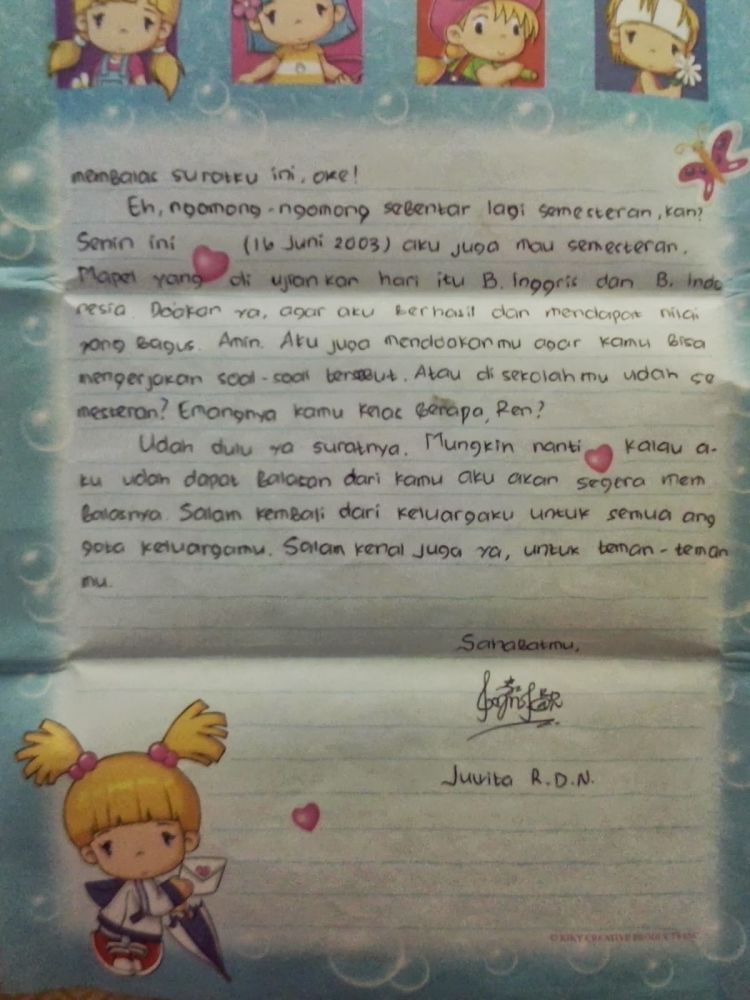 membalas suratku ini, oke!
Eh, ngomong-ngomong sebentar lagi semesteran, kan?
Senin ini (16 Juni 2003) aku juga mau semesteran.
Mapel yang di ujiankan hari itu B. Inggris dan B. Indo
nesia. Doakan ya, agar aku berhasil dan mendapat nilai
yang bagus. Amin. Aku juga mendoakanmu agar kamu bisa
mengerjakan soal-soal tersebut. Atau di sekolahmu udah se
mesteran? Emangnya kamu kelas berapa, Ren?
Udah dulu ya suratnya. Mungkin nanti kalau a-
ku udah dapat balasan dari kamu aku akan segera mem
balasnya. Salam kembali dari keluargaku untuk semua ang
gota keluargamu. Salam kenal juga ya, untuk teman-teman
mu.
Sahabatmu,
Juwita R.D.N.
© KIKY CREATIVE PRODUCTS INC.